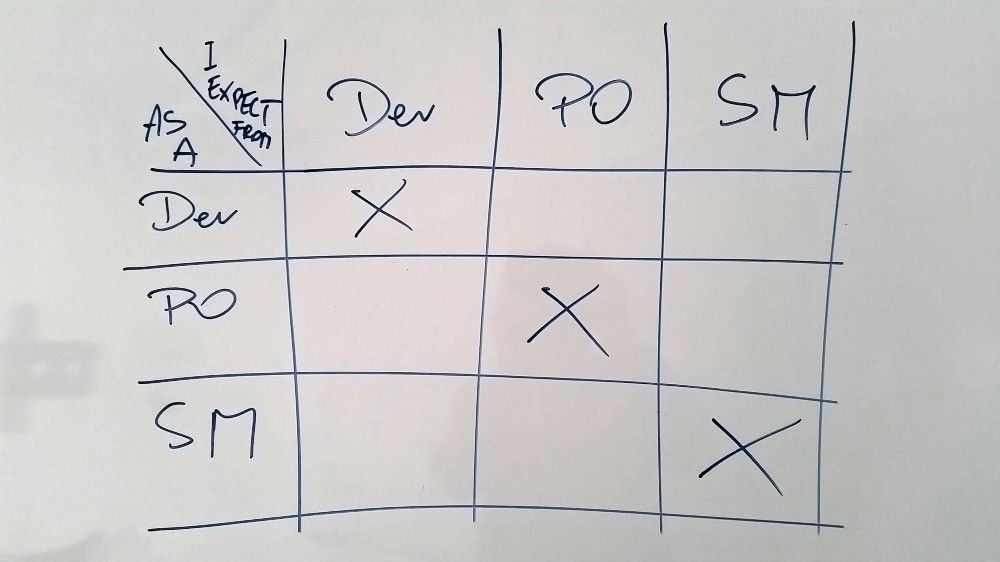 I
EXPECT
FROM
AS
A
Dev PO SM
Dev X
PO X
SM X